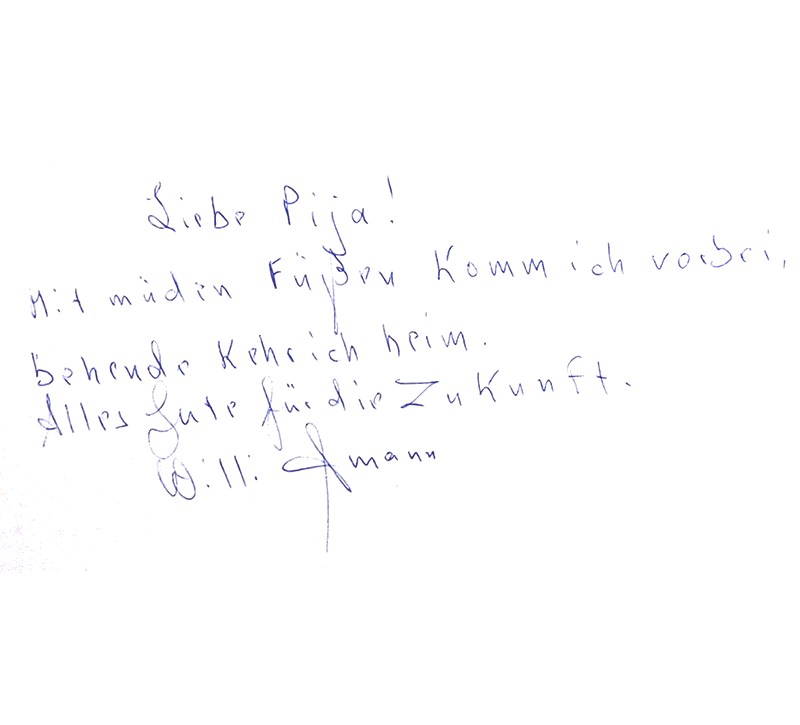 Liebe Pija!
Mit müden Füßen Komm ich vorbei,
behende Kehr ich heim.
Alles Gute für die Zukunft.
Willi Amann